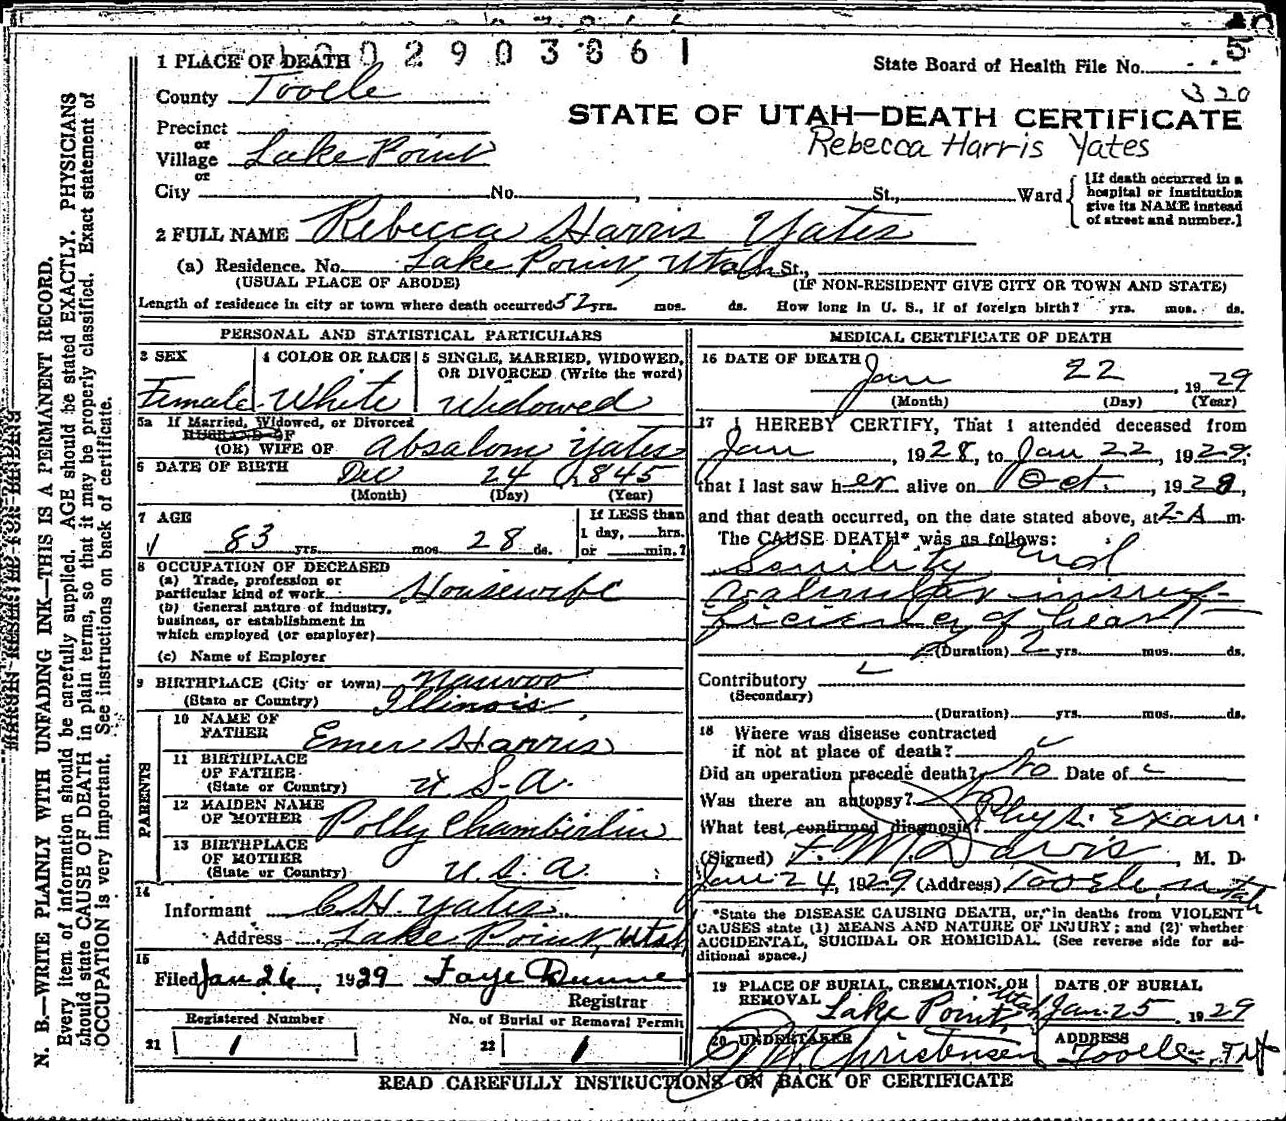 0 0 2 9 0 3 0 6 1
1 PLACE OF DEATH
State Board of Health File No. 5
320
County Tooele
STATE OF UTAH—DEATH CERTIFICATE
Rebecca Harris Yates
Precinct
or
Village Lake Point
or
City No. , St., Ward
[If death occurred in a
hospital or institution
give its NAME instead
of street and number.]
2 FULL NAME Rebecca Harris Yates
(a) Residence. No. Lake Point, Utah St.,
(USUAL PLACE OF ABODE) (IF NON-RESIDENT GIVE CITY OR TOWN AND STATE)
Length of residence in city or town where death occurred 52 yrs. mos. ds. How long in U. S., if of foreign birth? yrs. mos. ds.
PERSONAL AND STATISTICAL PARTICULARS
3 SEX
Female
4 COLOR OR RACE
White
5 SINGLE, MARRIED, WIDOWED,
OR DIVORCED (Write the word)
Widowed
5a If Married, Widowed, or Divorced
HUSBAND OF
(OR) WIFE OF Absalom Yates
6 DATE OF BIRTH Dec 24 1845
(Month) (Day) (Year)
7 AGE
83 yrs. mos. 28 ds.
If LESS than
1 day, hrs.
or min.?
8 OCCUPATION OF DECEASED
(a) Trade, profession or
particular kind of work Housewife
(b) General nature of industry,
business, or establishment in
which employed (or employer)
(c) Name of Employer
9 BIRTHPLACE (City or town) Nauvoo
(State or Country) Illinois
PARENTS
10 NAME OF
FATHER Emer Harris
11 BIRTHPLACE
OF FATHER
(State or Country) U.S.A.
12 MAIDEN NAME
OF MOTHER Polly Chamberlin
13 BIRTHPLACE
OF MOTHER
(State or Country) U.S.A.
14
Informant C.H. Yates
Address Lake Point, Utah
15
Filed Jan 26, 1929 Faye Dunne
Registrar
Registered Number No. of Burial or Removal Permit
21 1 22 1
MEDICAL CERTIFICATE OF DEATH
16 DATE OF DEATH
Jan 22 1929
(Month) (Day) (Year)
17 I HEREBY CERTIFY, That I attended deceased from
Jan, 1928, to Jan 22, 1929.
that I last saw her alive on Oct., 1928,
and that death occurred, on the date stated above, at 2 A m.
The CAUSE DEATH* was as follows:
Senility and
valvular insuf-
ficiency of heart
(Duration) 2 yrs. mos. ds.
Contributory
(Secondary)
(Duration) yrs. mos. ds.
18 Where was disease contracted
if not at place of death?
Did an operation precede death? No Date of
Was there an autopsy? No
What test confirmed diagnosis? Phys. Exam.
(Signed) F. M. Davis, M. D.
Jan 24, 1929 (Address) Tooele, Utah
*State the DISEASE CAUSING DEATH, or, in deaths from VIOLENT
CAUSES state (1) MEANS AND NATURE OF INJURY; and (2) whether
ACCIDENTAL, SUICIDAL OR HOMICIDAL. (See reverse side for ad-
ditional space.)
19 PLACE OF BURIAL, CREMATION, OR
REMOVAL Lake Point, Utah
DATE OF BURIAL
Jan. 25, 1929
20 UNDERTAKER
Christensen
ADDRESS
Tooele
READ CAREFULLY INSTRUCTIONS ON BACK OF CERTIFICATE
MARGIN RESERVED FOR BINDING
N. B.—WRITE PLAINLY WITH UNFADING INK—THIS IS A PERMANENT RECORD.
Every item of information should be carefully supplied. AGE should be stated EXACTLY. PHYSICIANS
should state CAUSE OF DEATH in plain terms, so that it may be properly classified. Exact statement of
OCCUPATION is very important. See instructions on back of certificate.